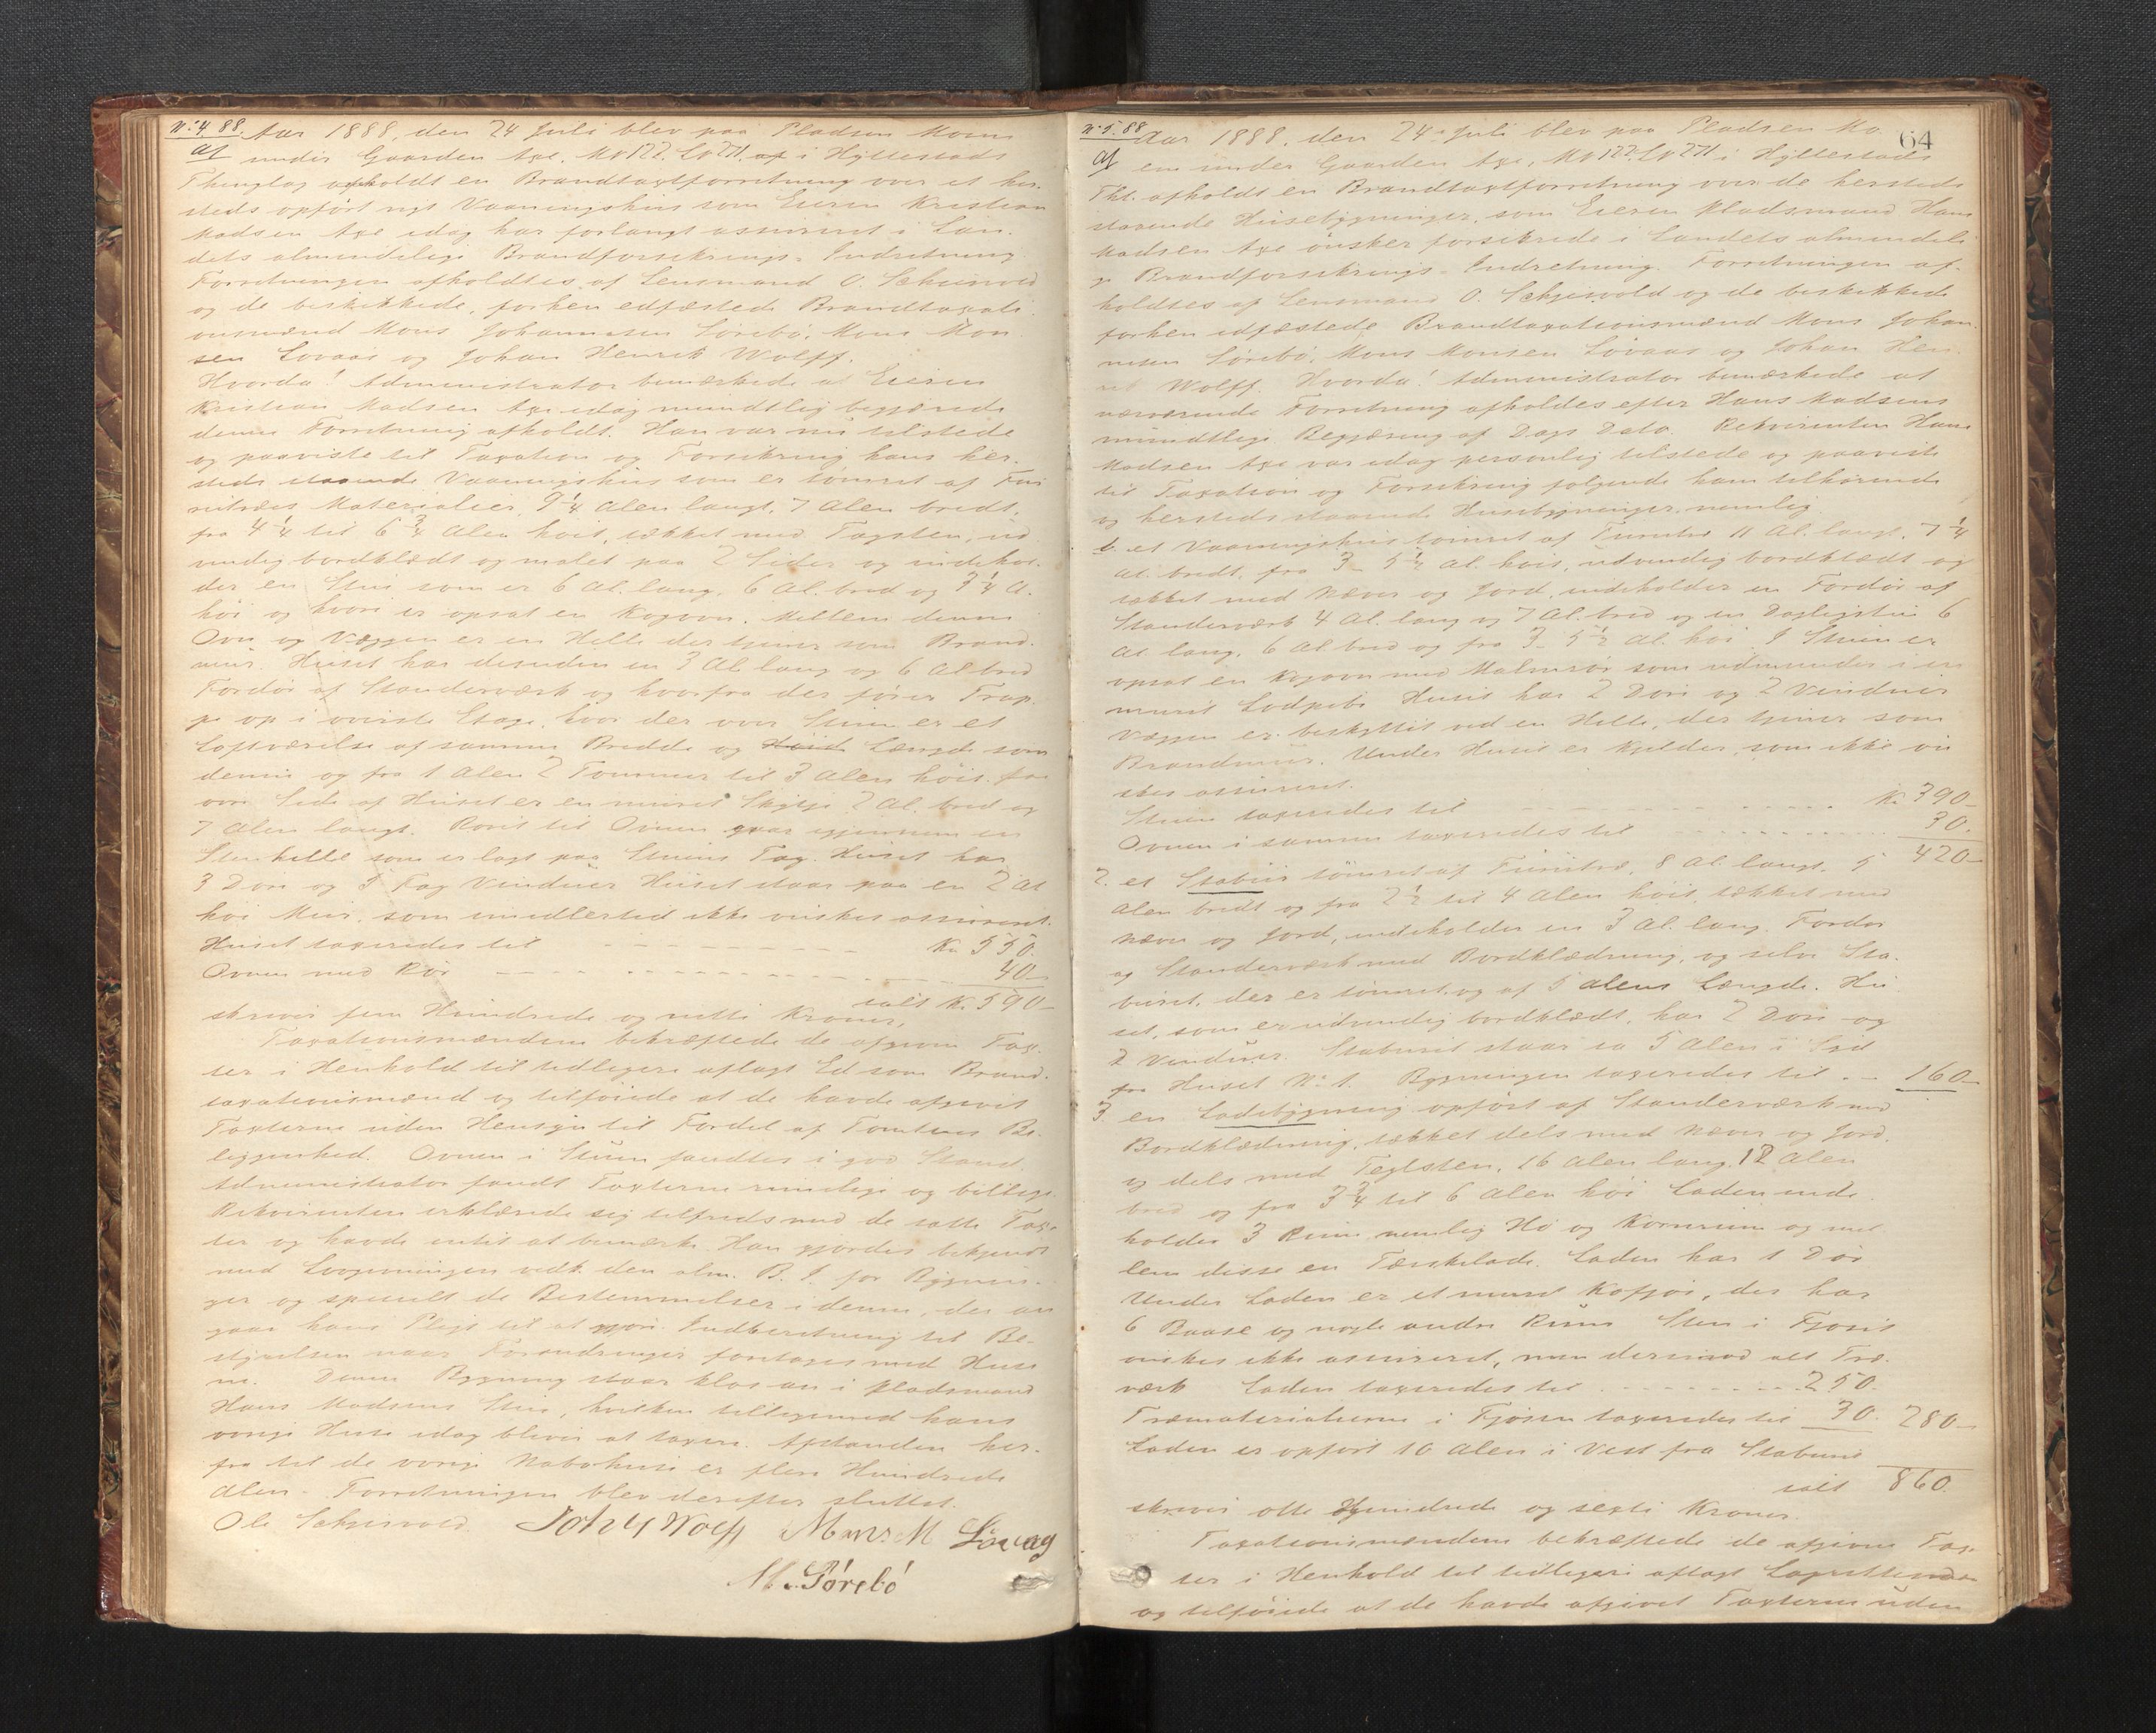 No 4. 88. Aar 1888, den 24 Juli blev paa Pladsen Moen
af under Gaarden Aae, M. No 122. L. No 271, i Hyllestads
Thinglag afholdt en Brandtaxtforretning over et her-
steds opført nyt Vaaningshus som Eieren Kristian
Madsen Aae idag har forlangt assureret i Lan-
dets almindelige Brandforsikrings-Indretning.
Forretningen afholdtes af Lensmand O. Schjersvold
og de beskikkede, forhen edfæstede Brandtaxati-
onsmænd Mons Johannesen Sørebø, Mons Mon-
sen Lovaas og Johan Henrik Wolff.
Hvorda! Administrator bemærkede at Eieren
Kristian Madsen Aae idag mundtlig begjærede
denne Forretning afholdt. Han var nu tilstede
og paaviste til Taxation og Forsikring hans her-
steds staaende Vaaningshus som er tømret af Fur
rutræes Materialier, 9 1/4 Alen langt, 7 Alen bredt,
fra 4 1/4 til 6 3/4 Alen høit, tækket med Tagsten, ud
vendig bordklædt og malet paa 2 Sider og indehol-
der en Stue som er 6 Al. lang, 6 Al. bred og 3 1/4 Al.
høi og hvori er opsat en Kogovn. Mellem denne
Ovn og Væggen er en Helle der tjener som Brand-
mur. Huset har desuden en 3 Al. lang og 6 Al bred
Fordør af Standerværk og hvorfra der fører Trap-
pe op i øverste Etage, hvor der over Stuen er et
Loftværelse af samme Bredde og Høide Længde som
denne og fra 1 Alen 2 Tommer til 3 Alen høit. Paa
øvre Side af Huset er en muret Skytje 2 Al. bred og
7 Alen langt. Røret til Ovnen gaar igjennem en
Stenhelle som er lagt paa Stuens Tag. Huset har
3 Døre og 5 Fag Vinduer. Huset staar paa en 2 Al
høi Mur, som imidlertid ikke ønskes assureret.
Huset taxeredes til Kr. 550.
Ovnen med Rør 40
ialt Kr. 590-
skriver fem Hundrede og nitti Kroner,
Taxationsmændene bekræftede de afgivne Tax-
ter i Henhold til tidligere aflagt Ed som Brand-
taxationsmænd og tilføiede at de havde afgivet
Taxterne uden Hensyn til Fordel af Tomtens Be-
liggenhed. Ovnen i Stuen fandtes i god Stand.
Administrator fandt Taxterne rimelige og billige.
Rekvirenten erklærede sig tilfreds med de satte Tax-
ter og havde intet at bemærke. Han gjordes bekjendt
med Lovgivningen vedk. den alm. B. I. for Bygnin-
ger og specielt de Bestemmelser i denne, der an
gaar hans Pligt til at gjøre Indberetning til Be-
styrelsen naar Forandringer foretages med Huse
ne. Denne Bygning staar klos an i Pladsmand
Hans Madsens Stue, hvilken tilligemed hans
øvrige Huse idag bliver at taxere. Afstanden her-
fra til de øvrige Nabohuse er flere Hundrede
Alen. Forretningen blev derefter sluttet.
Ole Schjersvold Joh H Wolff Mons M Lovag
M. Sørebø
64
No 5. 88 Aar 1888, den 24. Juli blev paa Pladsen Mo-
af en under Gaarden Aae, M. No 122. L. No 271 i Hyllestads
Thl. afholdt en Brandtaxtforretning over de hersteds
staaende Husebygninger, som Eieren Pladsmand Hans
Madsen Aae ønsker forsikrede i Landets almindeli
ge Brandforsikrings-Indretning. Forretningen af-
holdtes af Lensmand O. Schjersvold og de beskikkede
forhen edfæstede Brandtaxationsmænd Mons Johan-
nesen Sørebø, Mons Monsen Lovaas og Johan Hen-
rik Wolff. Hvorda! Administrator bemærkede at
nærværende Forretning afholdes efter Hans Madsens
mundtlige Begjæring af Dags Dato. Rekvirenten Hans
Madsen Aae var idag personlig tilstede og paaviste
til Taxation og Forsikring følgende ham tilhørende
og hersteds staaende Husebygninger, nemlig
1. et Vaaningshus tømret af Furutræ 11 Al. langt, 7 1/4
Al. bredt, fra 3-5 1/2 Al. høit, udvendig bordklædt og
tækket med Næver og Jord, indeholder en Fordør af
Standerværk 4 Al. lang og 7 Al. bred og en Dagligstue 6
Al. lang, 6 Al bred og fra 3-5 1/2 Al. høi. I Stuen er
opsat en Kogovn med Malmrør som udmunder i en
muret Lodpibe. Huset har 2 Døre og 2 Vinduer
Væggen er beskyttet ved en Helle, der tjener som
Brandmur. Under Huset er Kjelder, som ikke øn
skes assureret.
Stuen taxeredes til Kr. 390-
Ovnen i samme taxeredes til 30.
420-
2. et Stabur tømret af Furutræ, 8 Al. langt, 5
Alen bredt og fra 2 1/2 til 4 Alen høit, tækket med
Næver og Jord, indeholder en 3 Al. lang Fordør
af Standerværk med Bordklædning, og selve Sta-
buret, der er tømret og af 5 Alens Længde. Hu-
set, som er udvendig bordklædt, har 2 Døre og
2 Vinduer. Staburet staar ca 5 Alen i Syd
fra Huset No 1. Bygningen taxeredes til 160-
3. en Ladebygning opført af Standerværk med
Bordklædning, tækket dels med Næver og Jord
og dels med Teglsten, 16 Alen lang, 12 Alen
bred og fra 3 3/4 til 6 Alen høi. Laden inde
holder 3 Rum nemlig Hø og Kornrum og mel
lem disse en Tærskelade. Laden har 1 Dør
Under Laden er et muret Kofjøs, der har
6 Baase og nogle andre Rum. Sten i Fjøset
ønskes ikke assureret, men derimod alt Træ-
værk. Laden taxeredes til 250.
Træmaterialierne i Fjøsen taxeredes til 30. 280-
Laden er opført 10 Alen i Vest fra Staburet
ialt 860.
skriver otte Hundrede og sexti Kroner.
Taxationsmændene bekræftede de afgivne Tax-
ter i Henhold til tidligere aflagt Lagretteed
og tilføiede at de havde afgivet Taxterne uden